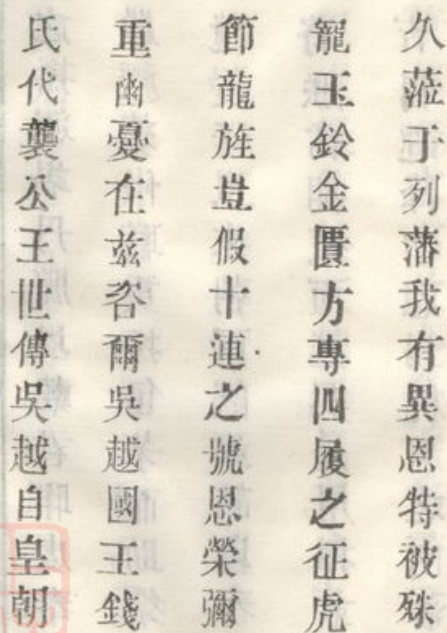 久蒞于列藩我有異恩特被殊
寵玉鈴金匱方專四履之征虎
節龍旌豈假十連之號恩榮彌
重幽憂在兹咨爾吳越國王錢
氏代襲公王世傳吳越自皇朝